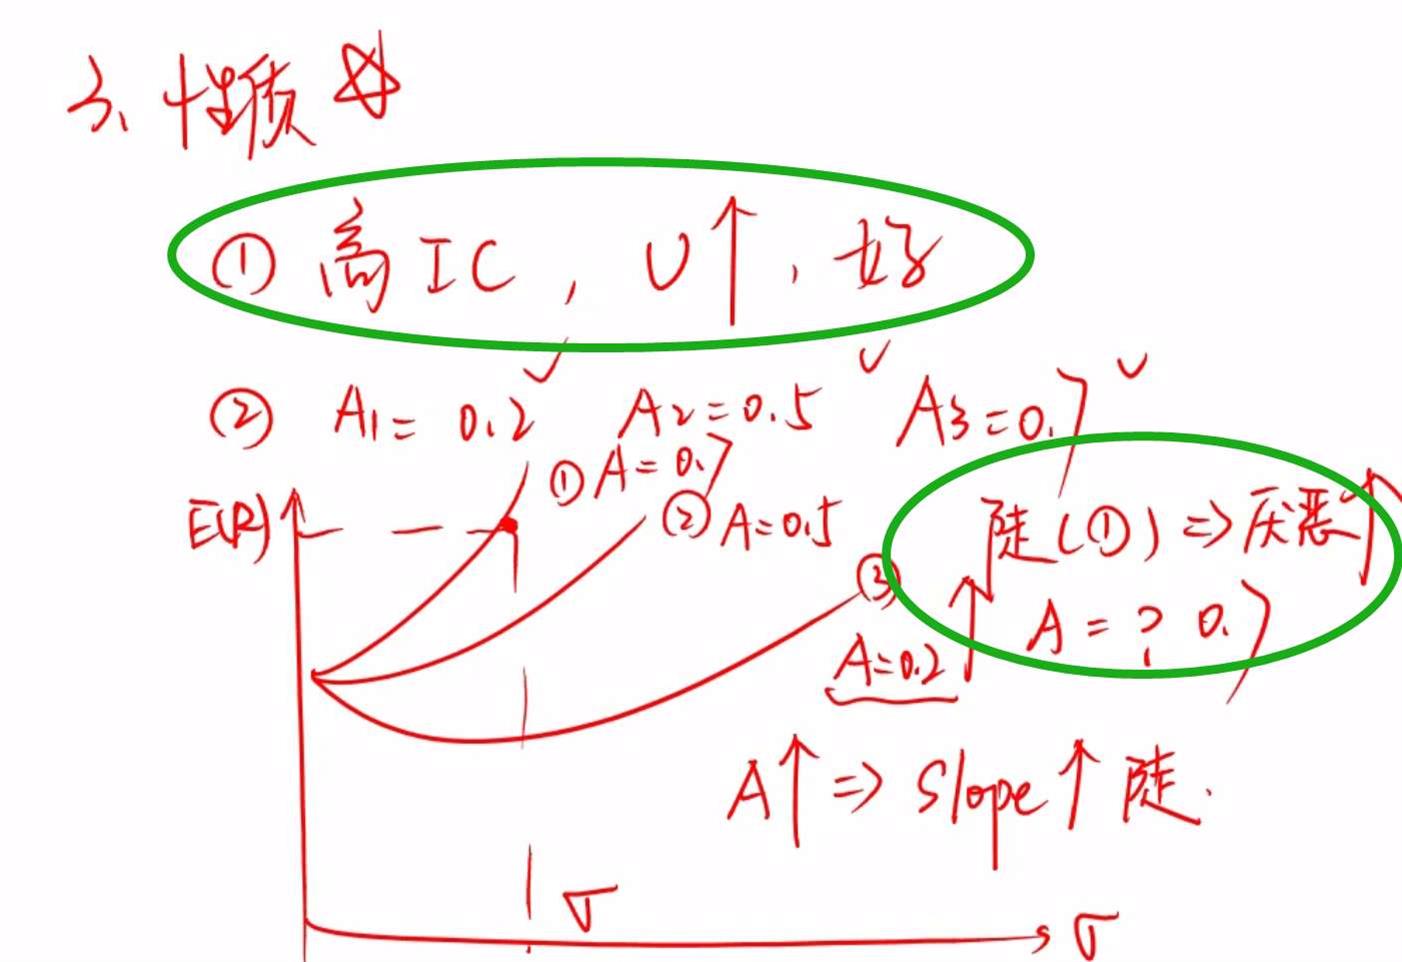 三、性质 ☆
① 高IC, U↑, 好
② A1=0.2 ✓ A2=0.5 ✓ A3=0.7 ✓
① A=0.7
② A=0.5
E(R)
陡(①) => 厌恶↑
③
A=0.2 ↑
A=? 0.7
A↑ => Slope↑ 陡.
σ
σ